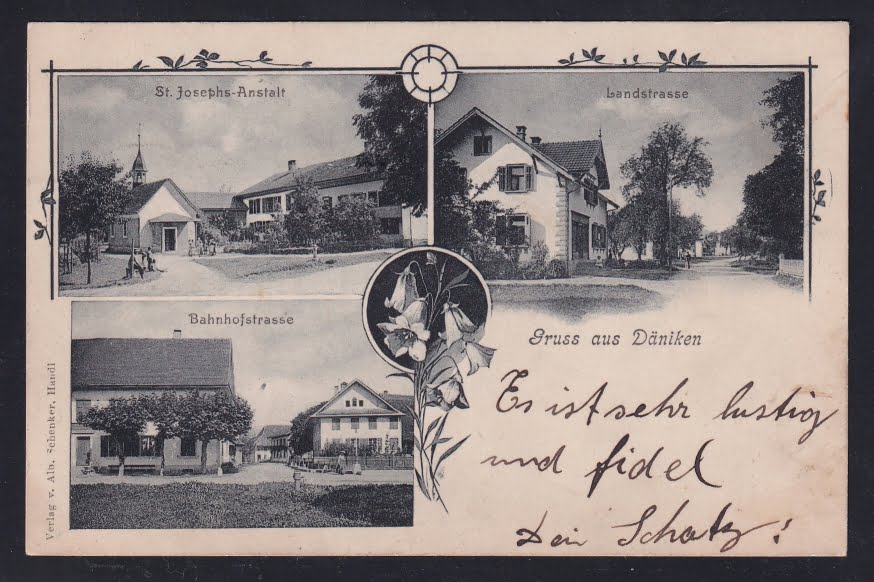 St. Josephs-Anstalt
Landstrasse
Bahnhofstrasse
Gruss aus Däniken
Es ist sehr lustig
und fidel
Dein Schatz!
Verlag v. Alb. Schenker, Handl